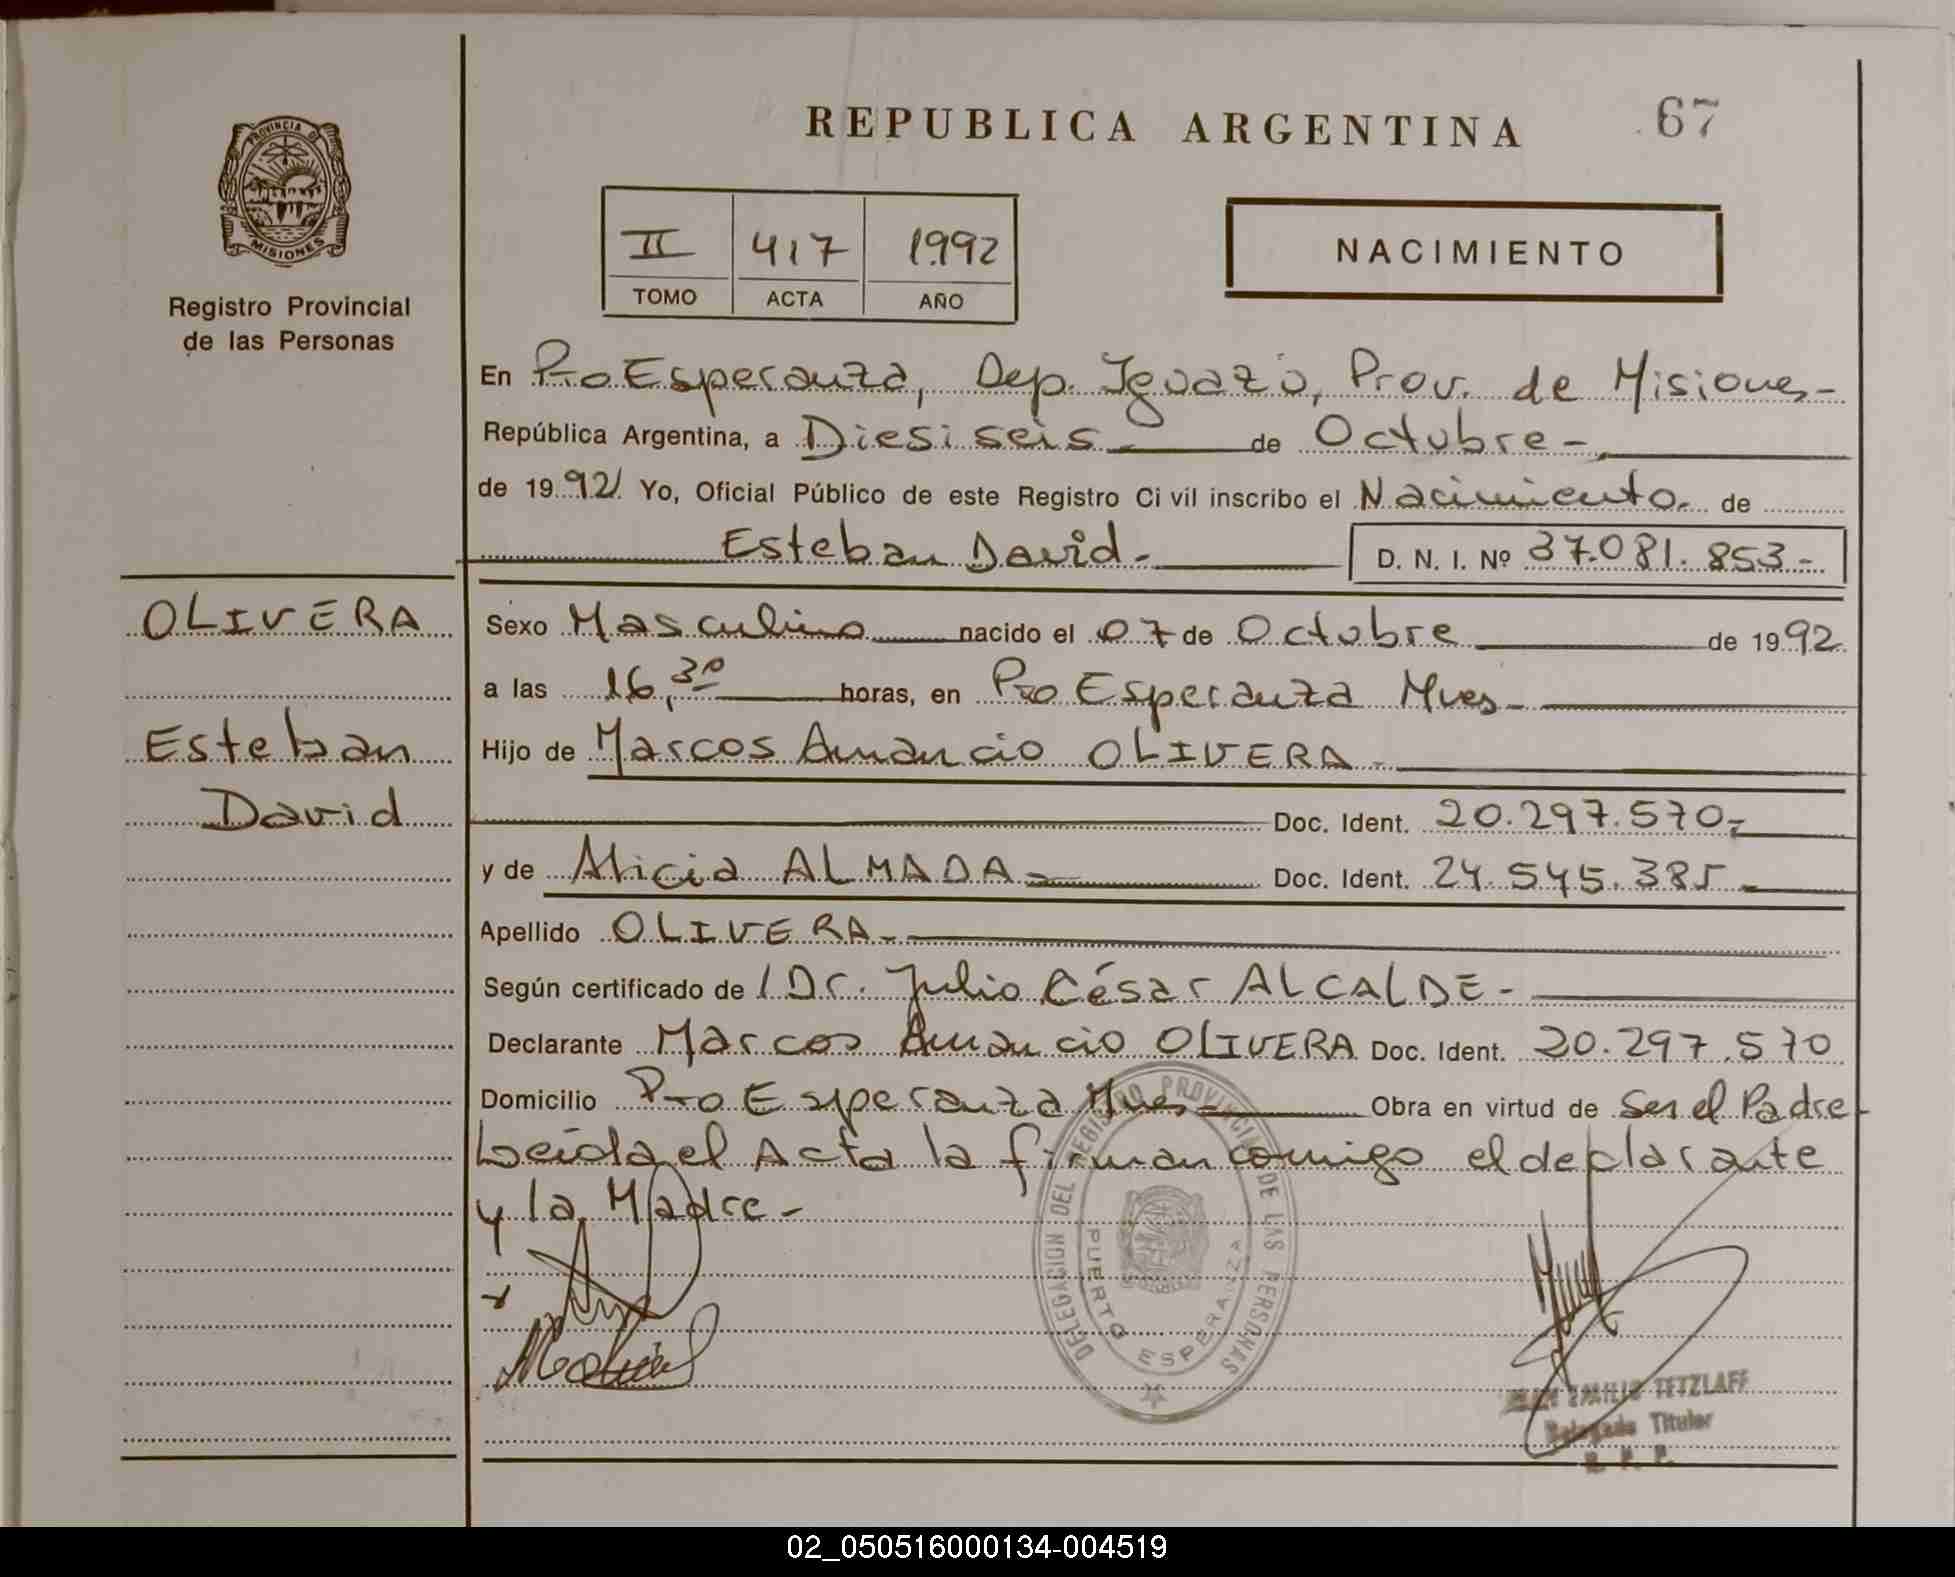 REPUBLICA ARGENTINA
67
PROVINCIA D
MISIONES
Registro Provincial
de las Personas
II 417 1992
TOMO ACTA AÑO
NACIMIENTO
En Pto Esperanza, Dep. Iguazú, Prov. de Misiones-
República Argentina, a Diesiseis- de Octubre-
de 1992/ Yo, Oficial Público de este Registro Civil inscribo el Nacimiento- de
Esteban David- D. N. I. Nº 37.081.853-
OLIVERA
Esteban
David
Sexo Masculino nacido el 07 de Octubre de 1992
a las 16,30 horas, en Pto Esperanza Mnes-
Hijo de Marcos Amancio OLIVERA-
Doc. Ident. 20.297.570-
y de Alicia ALMADA- Doc. Ident. 24.545.385-
Apellido OLIVERA-
Según certificado de / Dr. Julio César ALCALDE-
Declarante Marcos Amancio OLIVERA Doc. Ident. 20.297.570
Domicilio Pto Esperanza Mnes- Obra en virtud de Ser el Padre-
Leida el Acta la firman comigo el declarante
y la Madre-
DELEGACION DEL REGISTRO PROVINCIAL DE LAS PERSONAS
PUERTO ESPERANZA
EMILIO TETZLAFF
Delegado Titular
R. P. P.
02_050516000134-004519